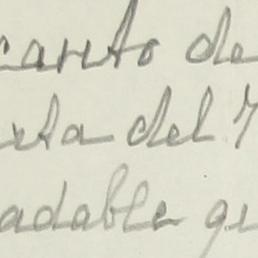 canto de
xta del 7
adable qu